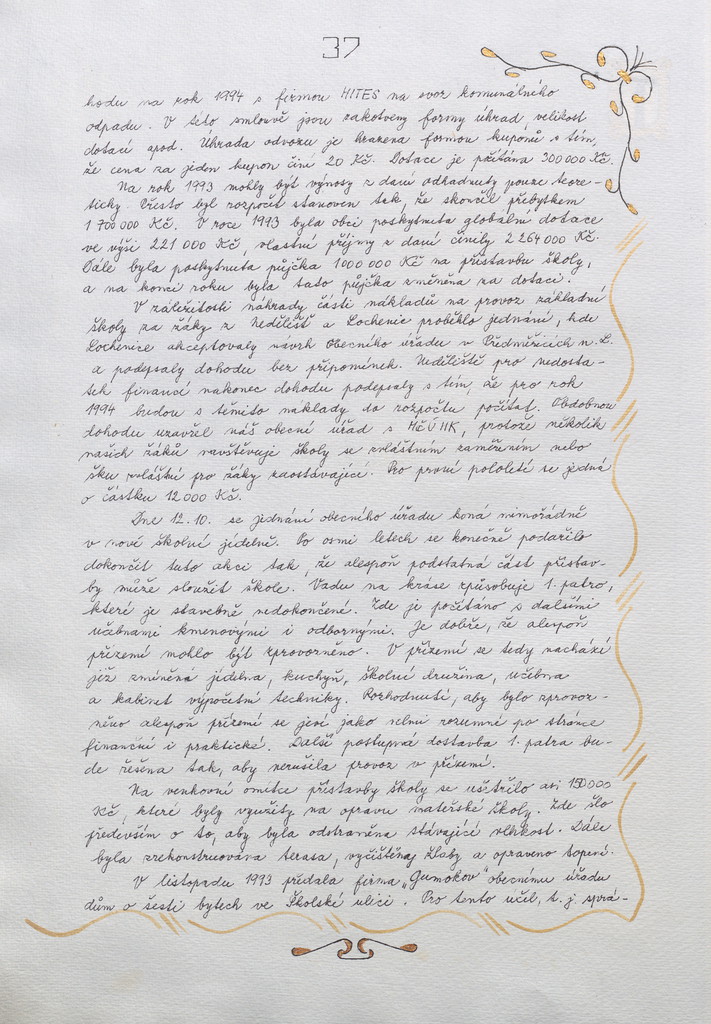 37
hodu na rok 1994 s firmou HITES na svoz komunálního
odpadu. V této smlouvě jsou zakotveny formy úhrad, velikost
dotací apod. Úhrada odvozu je hrazena formou kuponů s tím,
že cena za jeden kupon činí 20 Kč. Dotace je přitána 300 000 Kč.
Na rok 1993 mohly být výnosy z daní odhadnuty pouze teore-
ticky. Přesto byl rozpočet stanoven tak, že skončil přebytkem
1 700 000 Kč. V roce 1993 byla obci poskytnuta globální dotace
ve výši 221 000 Kč, vlastní příjmy z daní činily 2 264 000 Kč.
Dále byla poskytnuta půjčka 1000 000 Kč na přístavbu školy,
a na konci roku byla tato půjčka změněna za dotaci.
V záležitosti náhrady části nákladů na provoz základní
školy za žáky z Nedělišť a Lochenic proběhlo jednání, kde
Lochenice akceptovaly návrh Obecního úřadu v Předměřicích n. L.
a podepsaly dohodu bez připomínek. Neděliště pro nedosta-
tek financí nakonec dohodu podepsaly s tím, že pro rok
1994 budou s těmito náklady do rozpočtu počítat. Obdobnou
dohodu uzavřel náš obecní úřad s MěÚ HK, protože několik
našich žáků navštěvuje školy se zvláštním zaměřením nebo
šku zvláštní pro žáky zaostávající. Pro první pololetí se jedná
o částku 12 000 Kč.
Dne 12.10. se jednání obecního úřadu koná mimořádně
v nové školní jídelně. Po osmi letech se konečně podařilo
dokončit tuto akci tak, že alespoň podstatná část přístav-
by může sloužit škole. Vadu na kráse způsobuje 1. patro,
které je stavebně nedokončené. Zde je počítáno s dalšími
učebnami kmenovými i odbornými. Je dobře, že alespoň
přízemí mohlo být zprovozněno. V přízemí se tedy nachází
již zmíněná jídelna, kuchyň, školní družina, učebna
a kabinet výpočetní techniky. Rozhodnutí, aby bylo zprovoz-
něno alespoň přízemí se jeví jako velmi rozumné po stránce
finanční i praktické. Další postupná dostavba 1. patra bu-
de řešena tak, aby nerušila provoz v přízemí.
Na venkovní omítce přístavby školy se ušetřilo asi 150 000
Kč, které byly využity na opravu mateřské školy. Zde šlo
především o to, aby byla odstraněna stávající vlhkost. Dále
byla zrekonstruována terasa, vyčištěny žlaby a opraveno topení.
V listopadu 1993 předala firma „Gumokov" obecnímu úřadu
dům o šesti bytech ve Školské ulici. Pro tento účel, t. j. sprá-